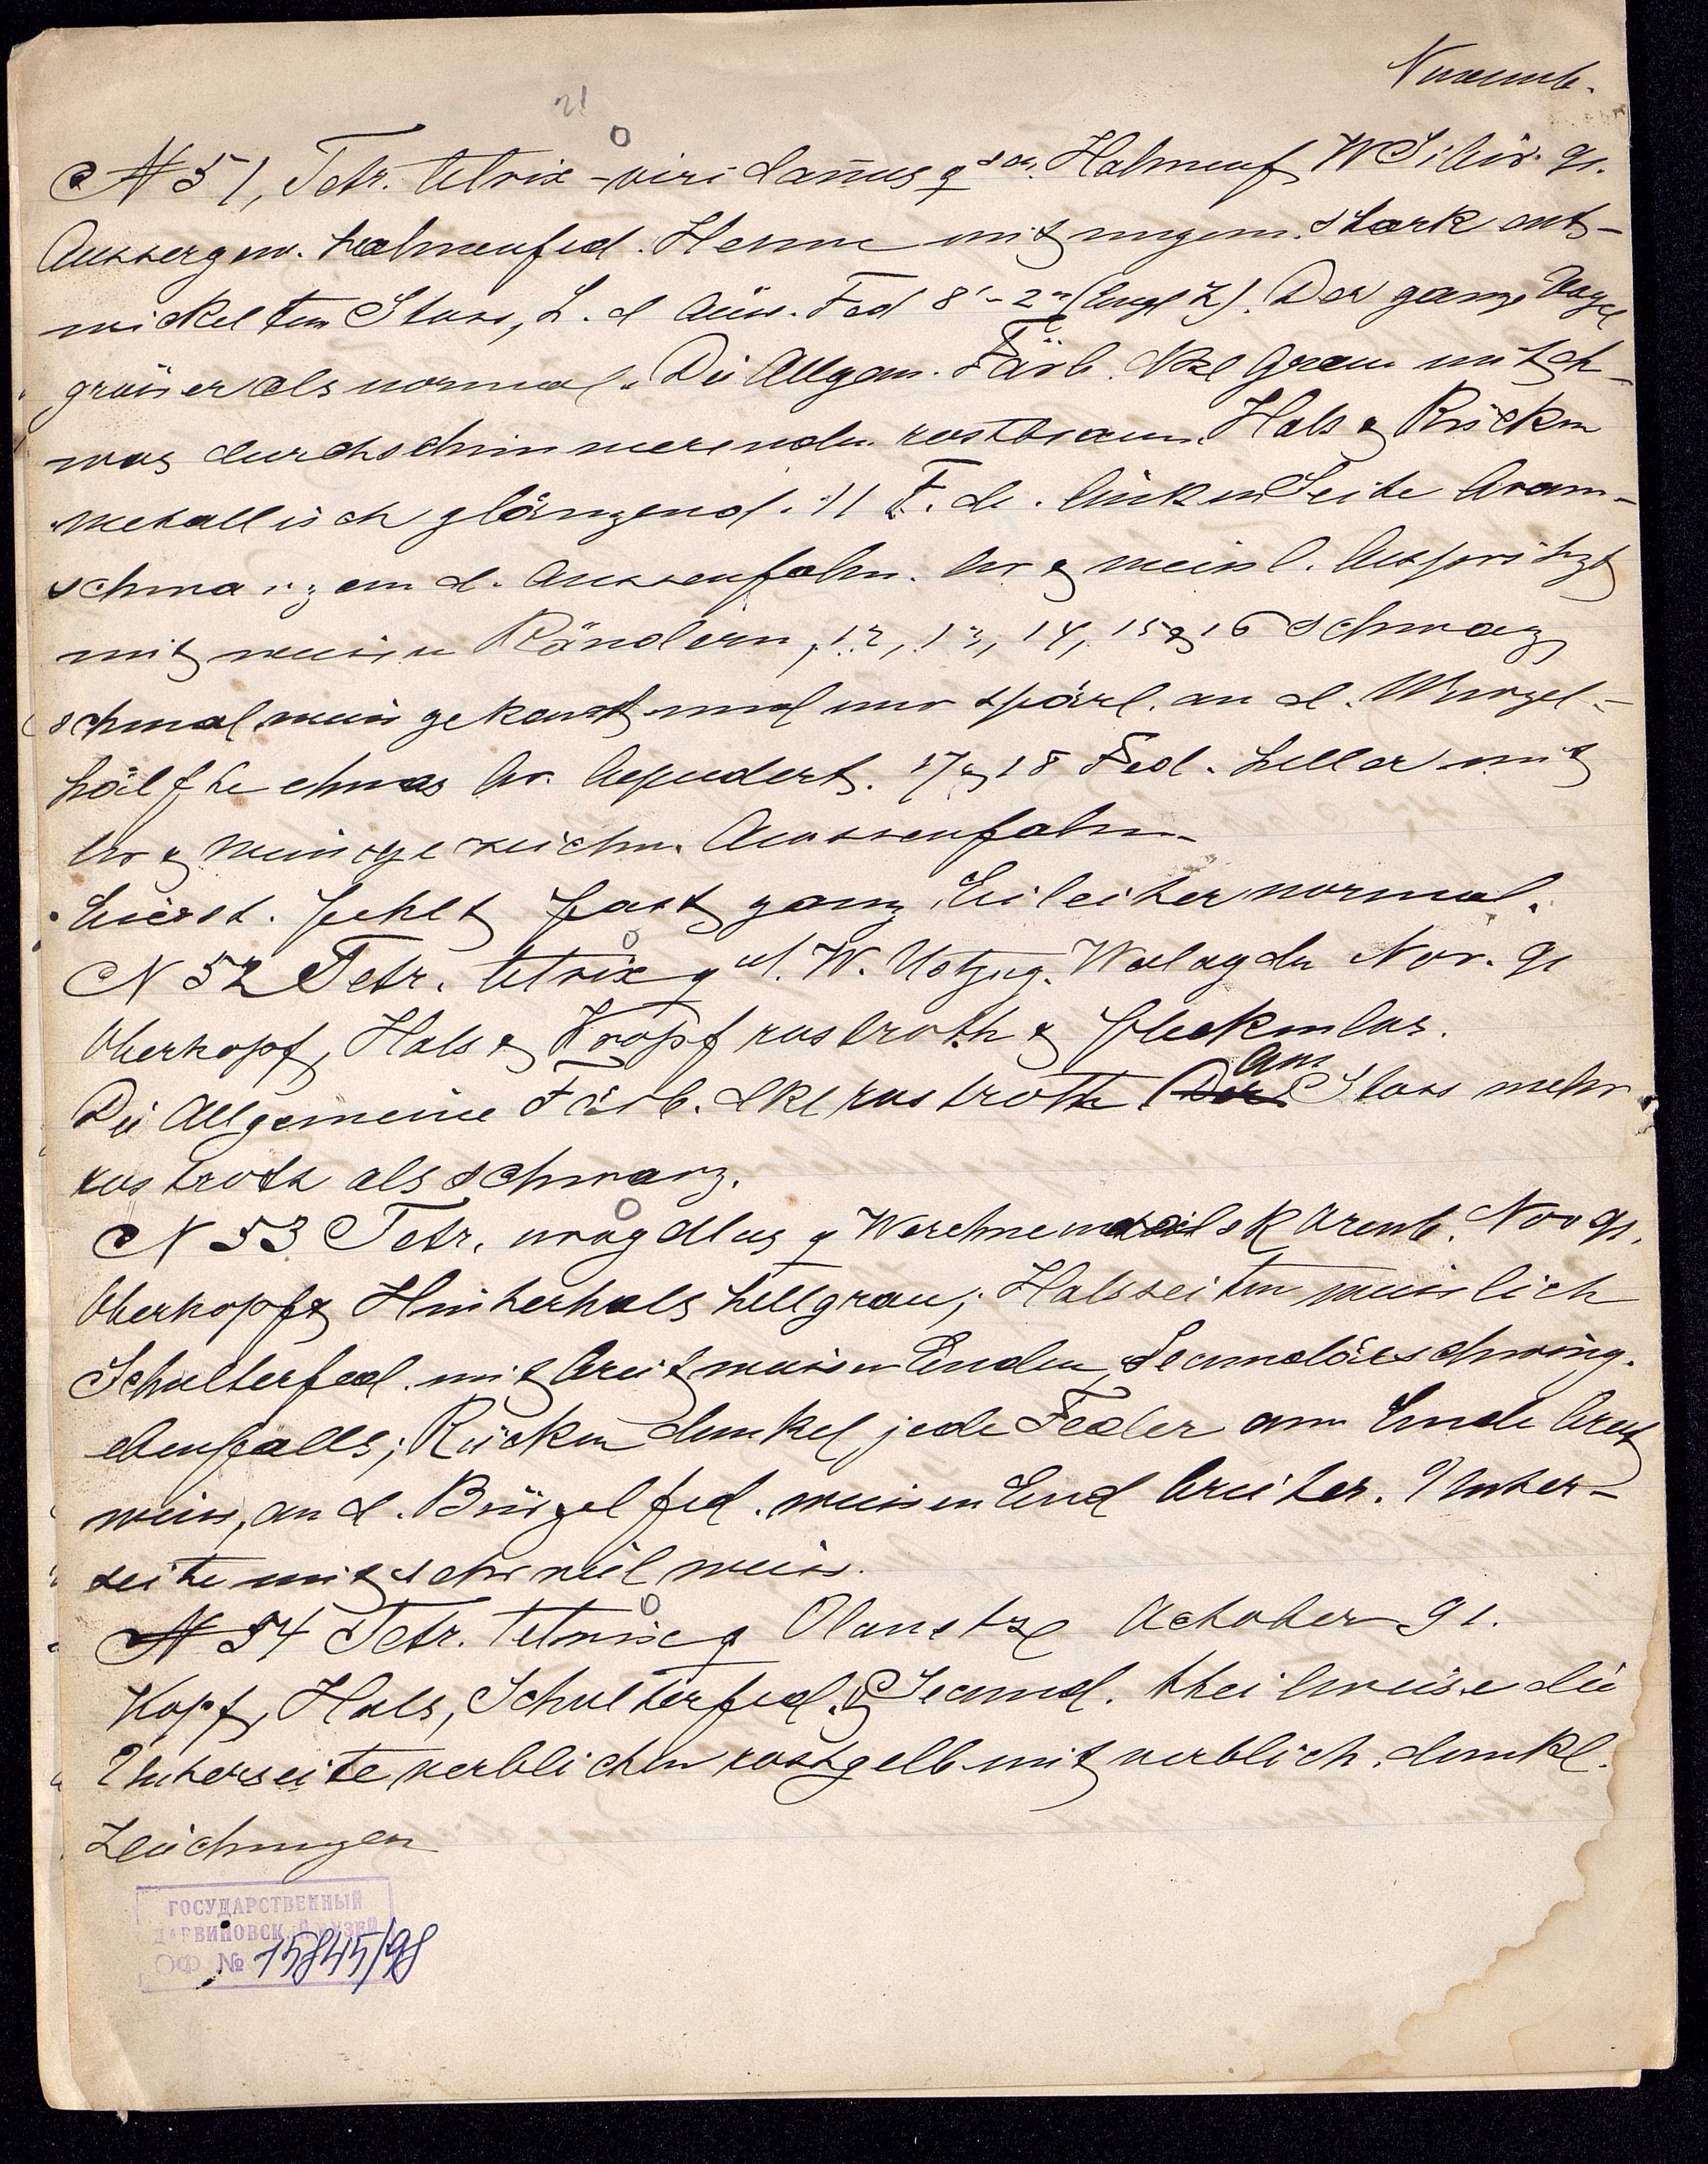 Novemb.
21
N 51, Tetr. tetrix-viridanus ♀ Hahnenf. W Sibir. 91.
Aussergew. hahnenfed. Henne mit ungem. stark ent-
wickeltem Stoss, L. d äus. Fed 8'-2" (engl Z). Der ganze Vogel
grösser als normal. Die Allgem. Färb. dkl Grau mit sch-
warz durchschimmerenden rostbraun. Hals & Rücken
metallisch glänzend. 11 F. de. linken Seite braun-
schwarz an d. Aussenfahn. br & weissl. bespritzt
mit weissen Rändern, 12, 13, 14, 15 & 16 schwarz,
schmal weiss gekantet und nur spärl. an d. Wurzel-
hälfte etwas br. bepudert. 17 & 18 Fed. heller mit
br & weiss gezeichn. Aussenfahn.
Eierst. fehlt fast ganz, Eileiter normal.
N 52 Tetr. tetrix ♀ ad. W. Ustjug. Wologda Nov. 91
Oberkopf, Hals & Kropf rostroth & fleckenlos.
Die Allgemeine Färb. dkl rostroth Der am Stoss mehr
rostroth als schwarz.
N 53 Tetr. urogallus ♀ Werchneuralsk Orenb. Nov 91.
Oberkopf & Hinterhals hellgrau; Halsseiten weisslich
Schulterfed. mit breit weissen Enden, Secundärschwing.
ebenfalls; Rücken dunkel jede Feder am Ende breit
weiss, an d. Bürzelfed. weissen End breiter. Unter-
seite mit sehr viel weiss.
N 54 Tetr. tetrix ♀ Olonetzk October 91.
Kopf, Hals, Schulterfed. & Secund. theilweise die
Unterseite verblichen rostgelb mit verblich. dunkl.
Zeichnungen
ГОСУДАРСТВЕННЫЙ
ДАРВИНОВСКИЙ МУЗЕЙ
ОФ № 15845/98